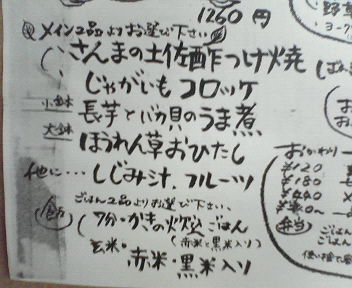 1260円
メイン2品よりお選び下さい
さんまの土佐酢つけ焼
じゃがいもコロッケ
小鉢 長芋とバカ貝のうま煮
大鉢 ほうれん草おひたし
他に… しじみ汁、フルーツ
ごはん2品よりお選び下さい、
7分・かきの炊込ごはん
(赤米と黒米入り)
玄米・赤米・黒米入り
おかわり
¥120
¥180
弁当